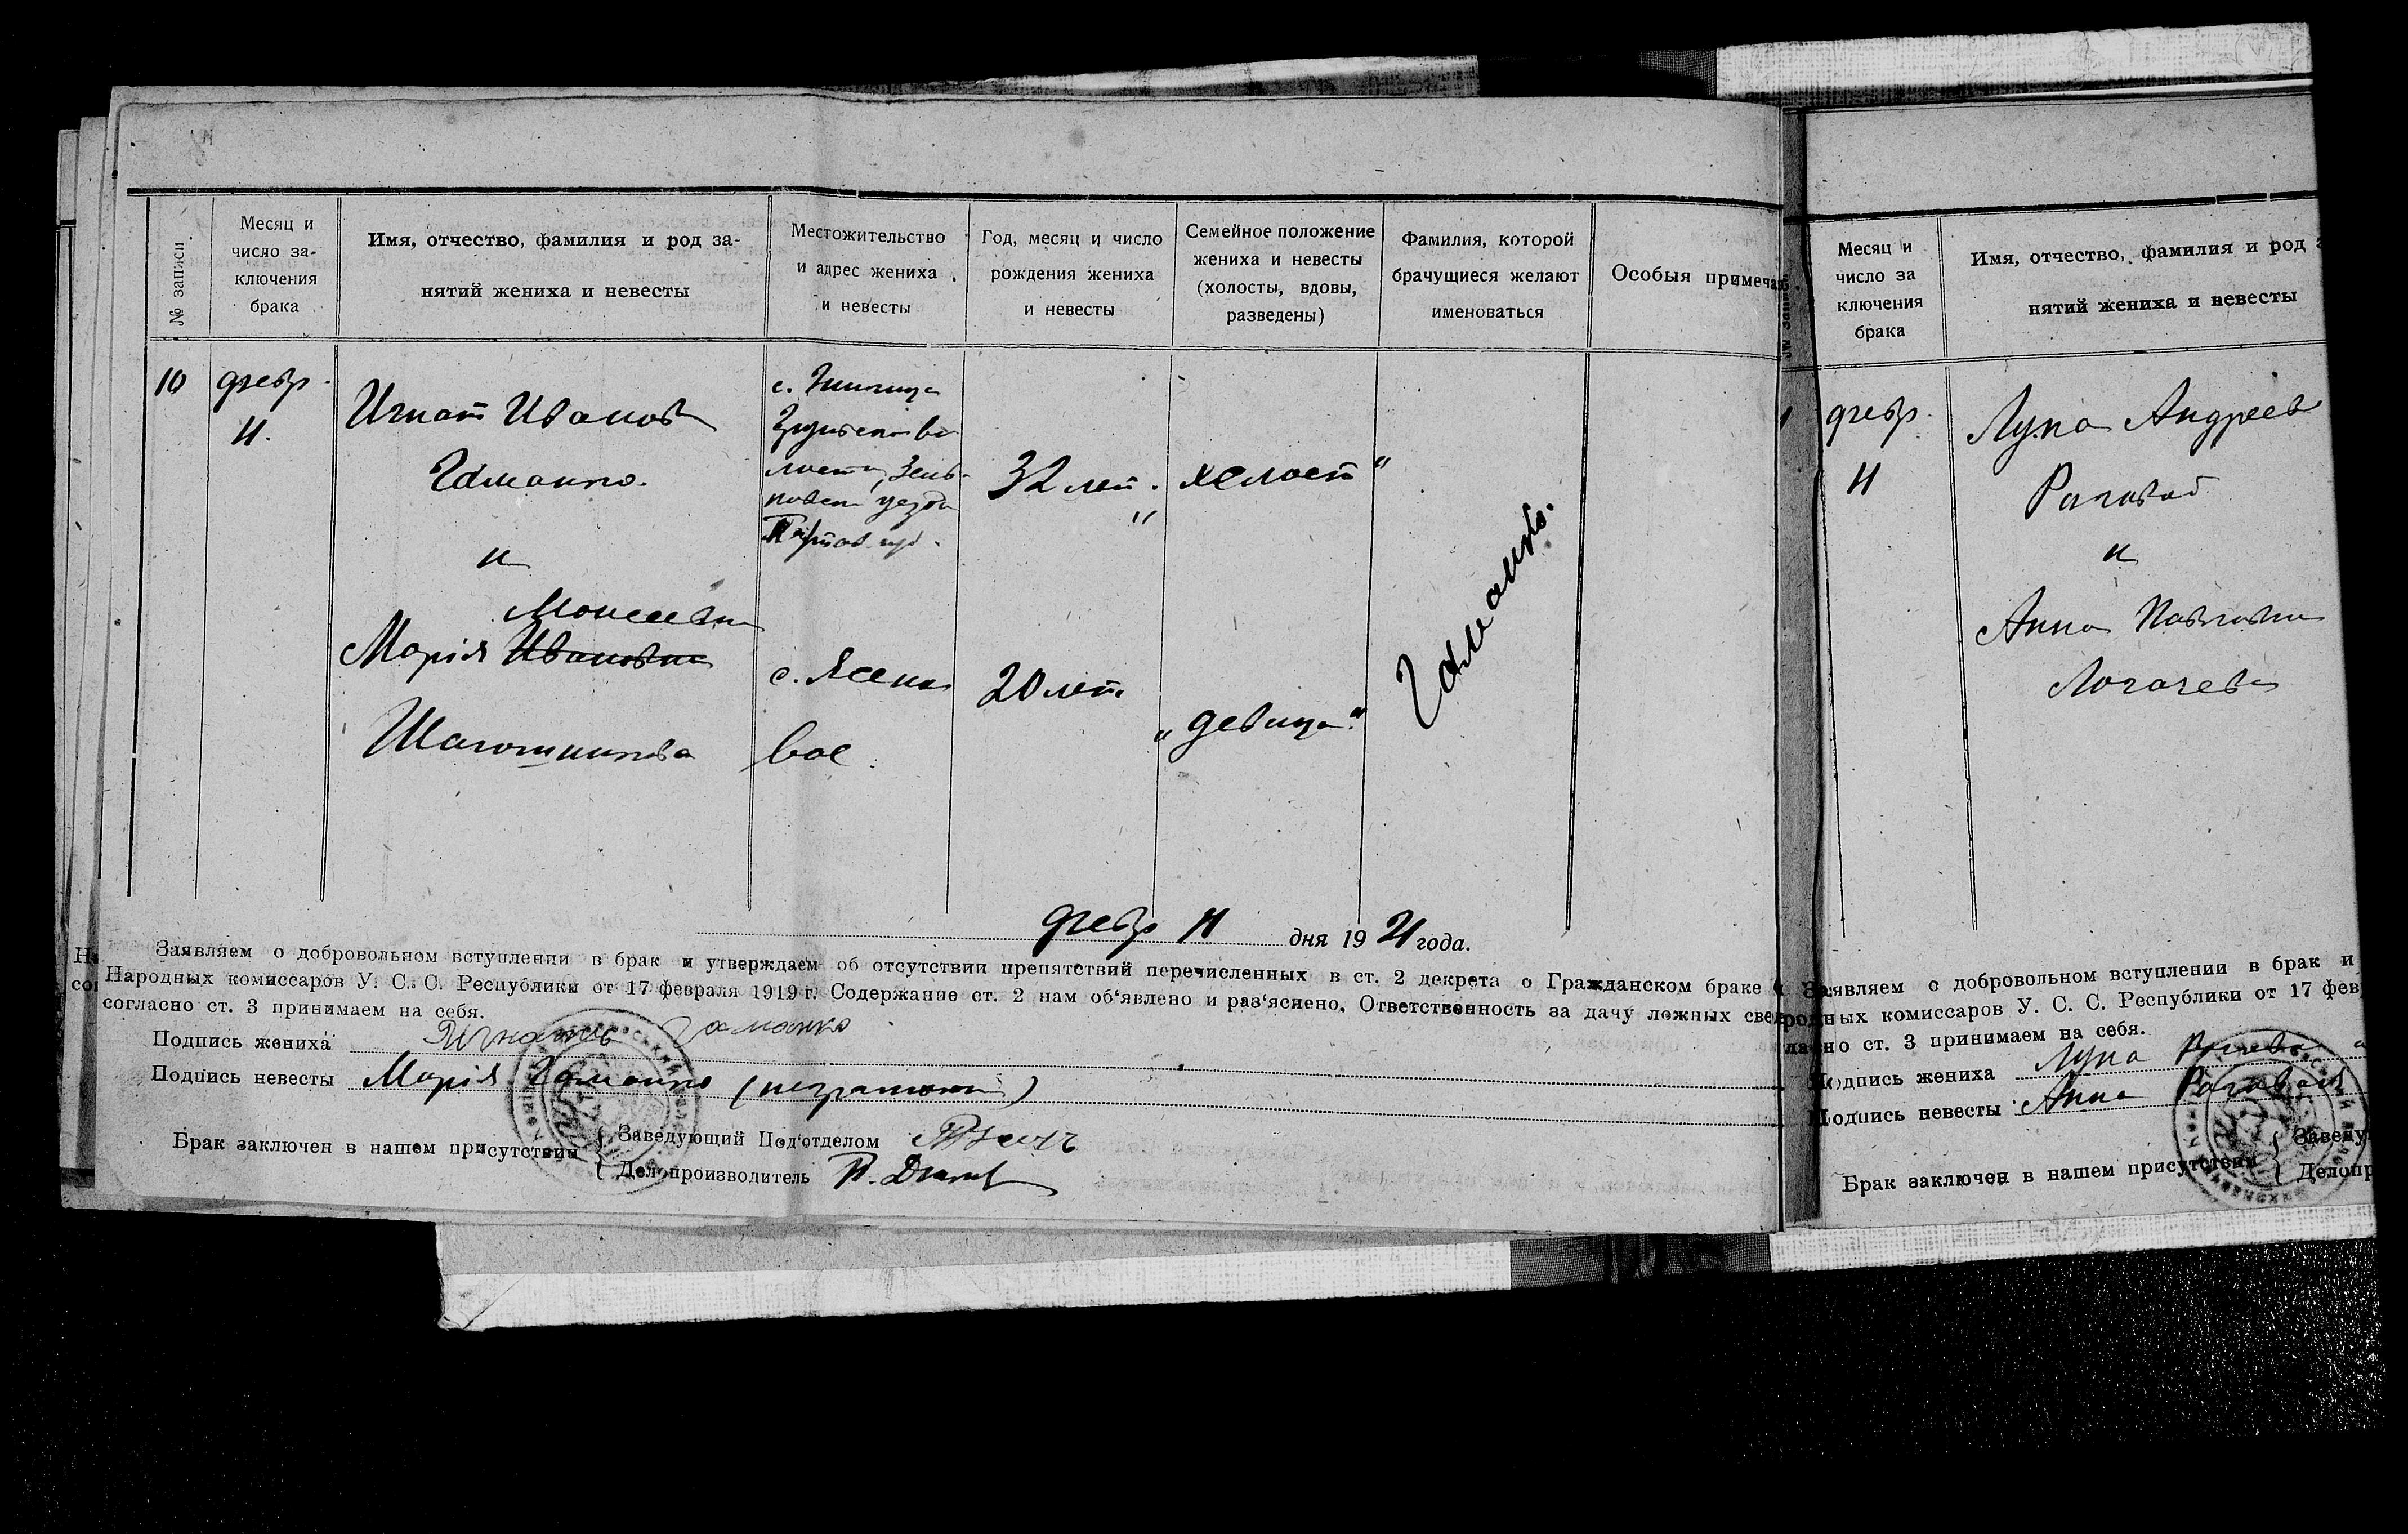 № записи
Месяц и
число за-
ключения
брака
Имя, отчество, фамилия и род за-
нятий жениха и невесты
Местожительство
и адрес жениха
и невесты
Год, месяц и число
рождения жениха
и невесты
Семейное положение
жениха и невесты
(холосты, вдовы,
разведены)
Фамилия, которой
брачущиеся желают
именоваться
Особыя примечан
10
февр.
11.
Игнат Иванов
Гаманко.
и
Моисеевна
Марія Ивановна
с.
уезда
губ.
с. Ясено
вое.
32 лет.
20 лет.
холост"
„девица"
Гаманко.
февр 11 дня 1921 года.
Заявляем о добровольном вступлении в брак и утверждаем об отсутствии препятствий перечисленных в ст. 2 декрета о Гражданском браке
Народных комиссаров У. С. С. Республики от 17 февраля 1919 г. Содержание ст. 2 нам об'явлено и раз'яснено. Ответственность за дачу ложных свед
согласно ст. 3 принимаем на себя.
Подпись жениха Игнатъ Гаманко
Подпись невесты Марія Гаманко (неграмотн)
Брак заключен в нашем присутствии
Заведующий Под'отделом
Делопроизводитель П.
Месяц и
число за
ключения
брака
Имя, отчество, фамилия и род
нятий жениха и невесты
февр.
11
Лука Андреев
и
Анна Павловна
Логачева
Заявляем о добровольном вступлении в брак и
родных комиссаров У. С. С. Республики от 17 фев
ласно ст. 3 принимаем на себя.
Подпись жениха Лука
Подпись невесты Анна
Брак заключен в нашем присутствии
Заведу
Делопр